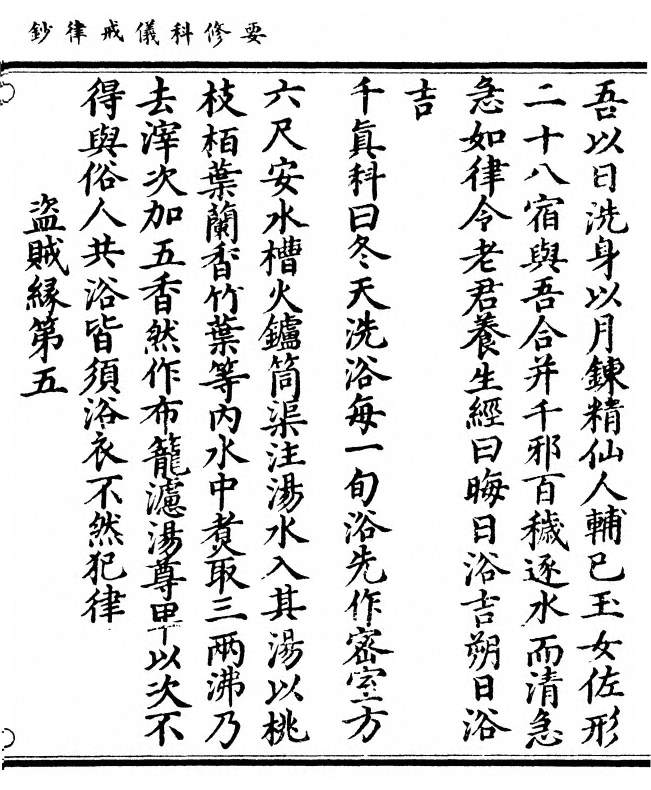 要修科儀戒律鈔
吾以日洗身以月鍊精仙人輔己玉女佐形
二十八宿與吾合并千邪百穢逐水而清急
急如律令老君養生經曰晦日浴吉朔日浴
吉
千真科曰冬天洗浴每一旬浴先作密室方
六尺安水槽火鑪筒渠注湯水入其湯以桃
枝栢葉蘭香竹葉等內水中煑取三兩沸乃
去滓次加五香然作布籠濾湯尊卑以次不
得與俗人共浴皆須浴衣不然犯律
盜賊緣第五